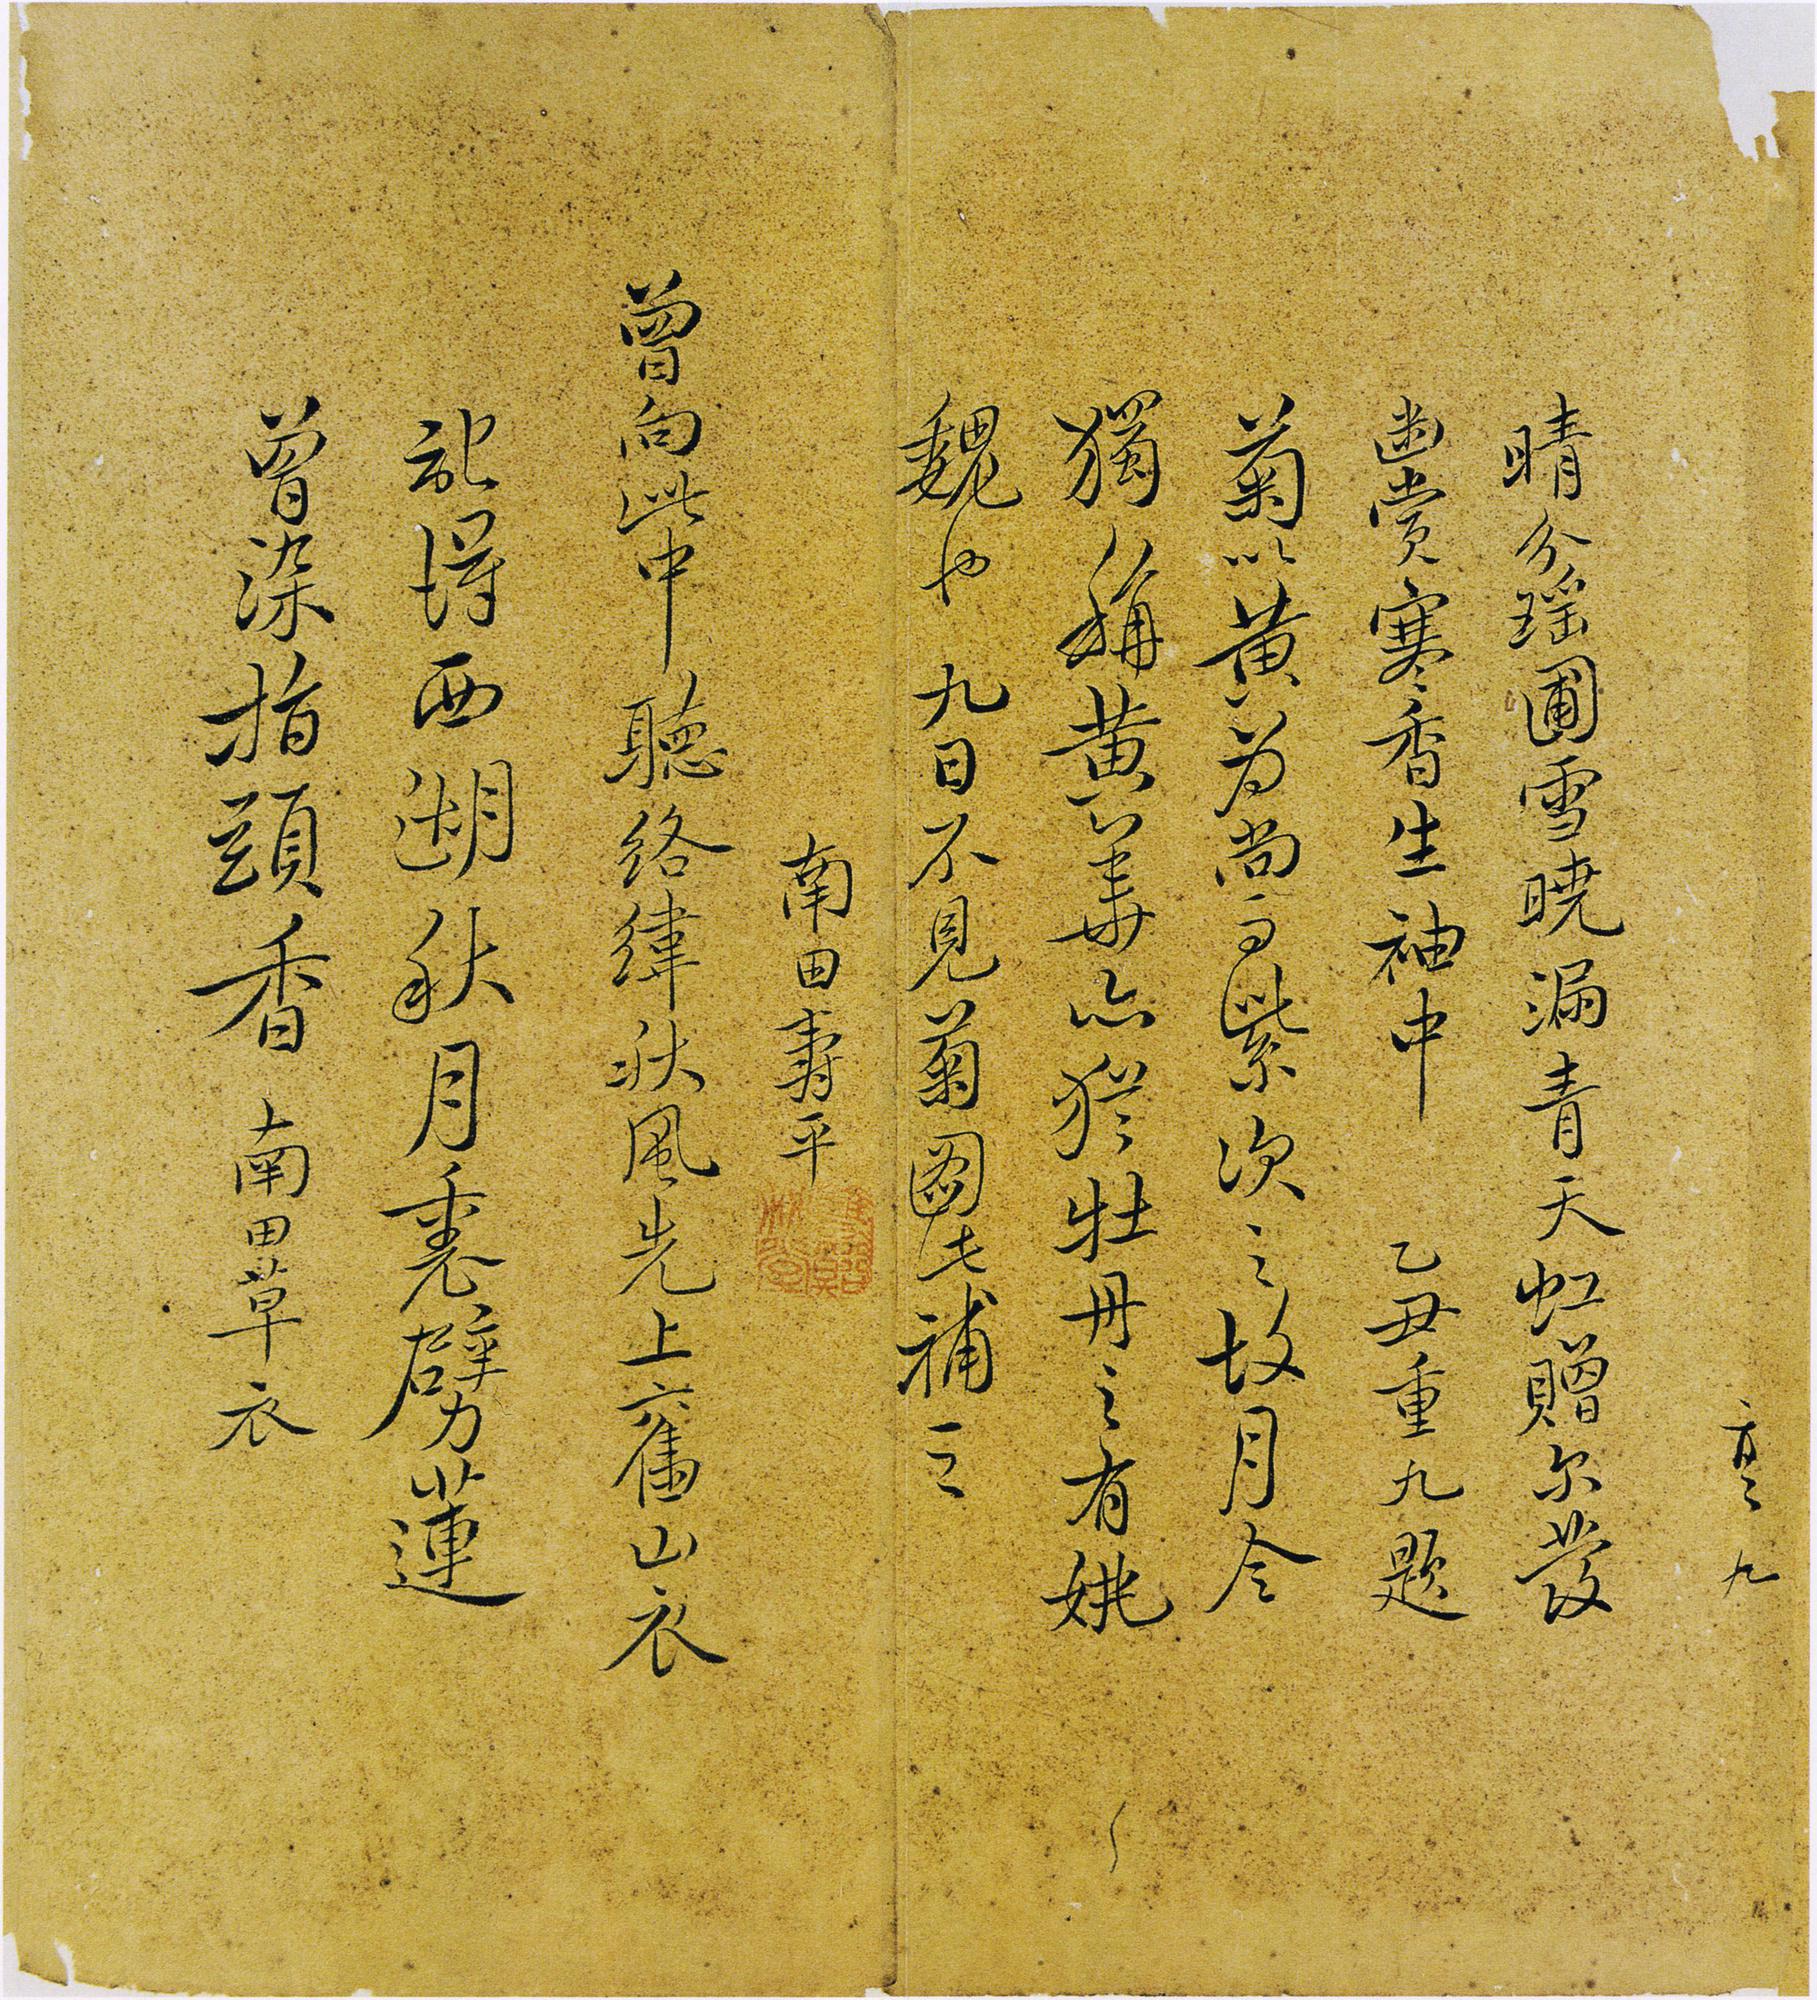 亨九
晴分瑤圃雪曉漏青天虹贈尔發
幽賞寒香生袖中 乙丑重九題
菊以黃為尚而紫次之故月令
獨稱黃華亦猶牡丹之有姚
魏也 九日不見菊圖此補之
南田壽平
曾向此中聽絡緯秋風先上舊山衣
記得西湖秋月裏劈蓮
曾染指頭香 南田草衣